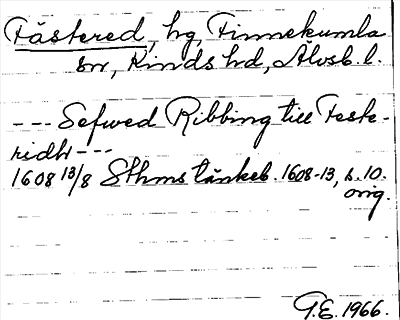 Fästered, hg, Finnekumla
sn, Kinds hd, Älvsb. l.
--- Sefwed Ribbing till Feste-
ridh ---
1608 13/8 Sthms tänkeb. 1608-13, s. 10.
orig.
G.E. 1966.